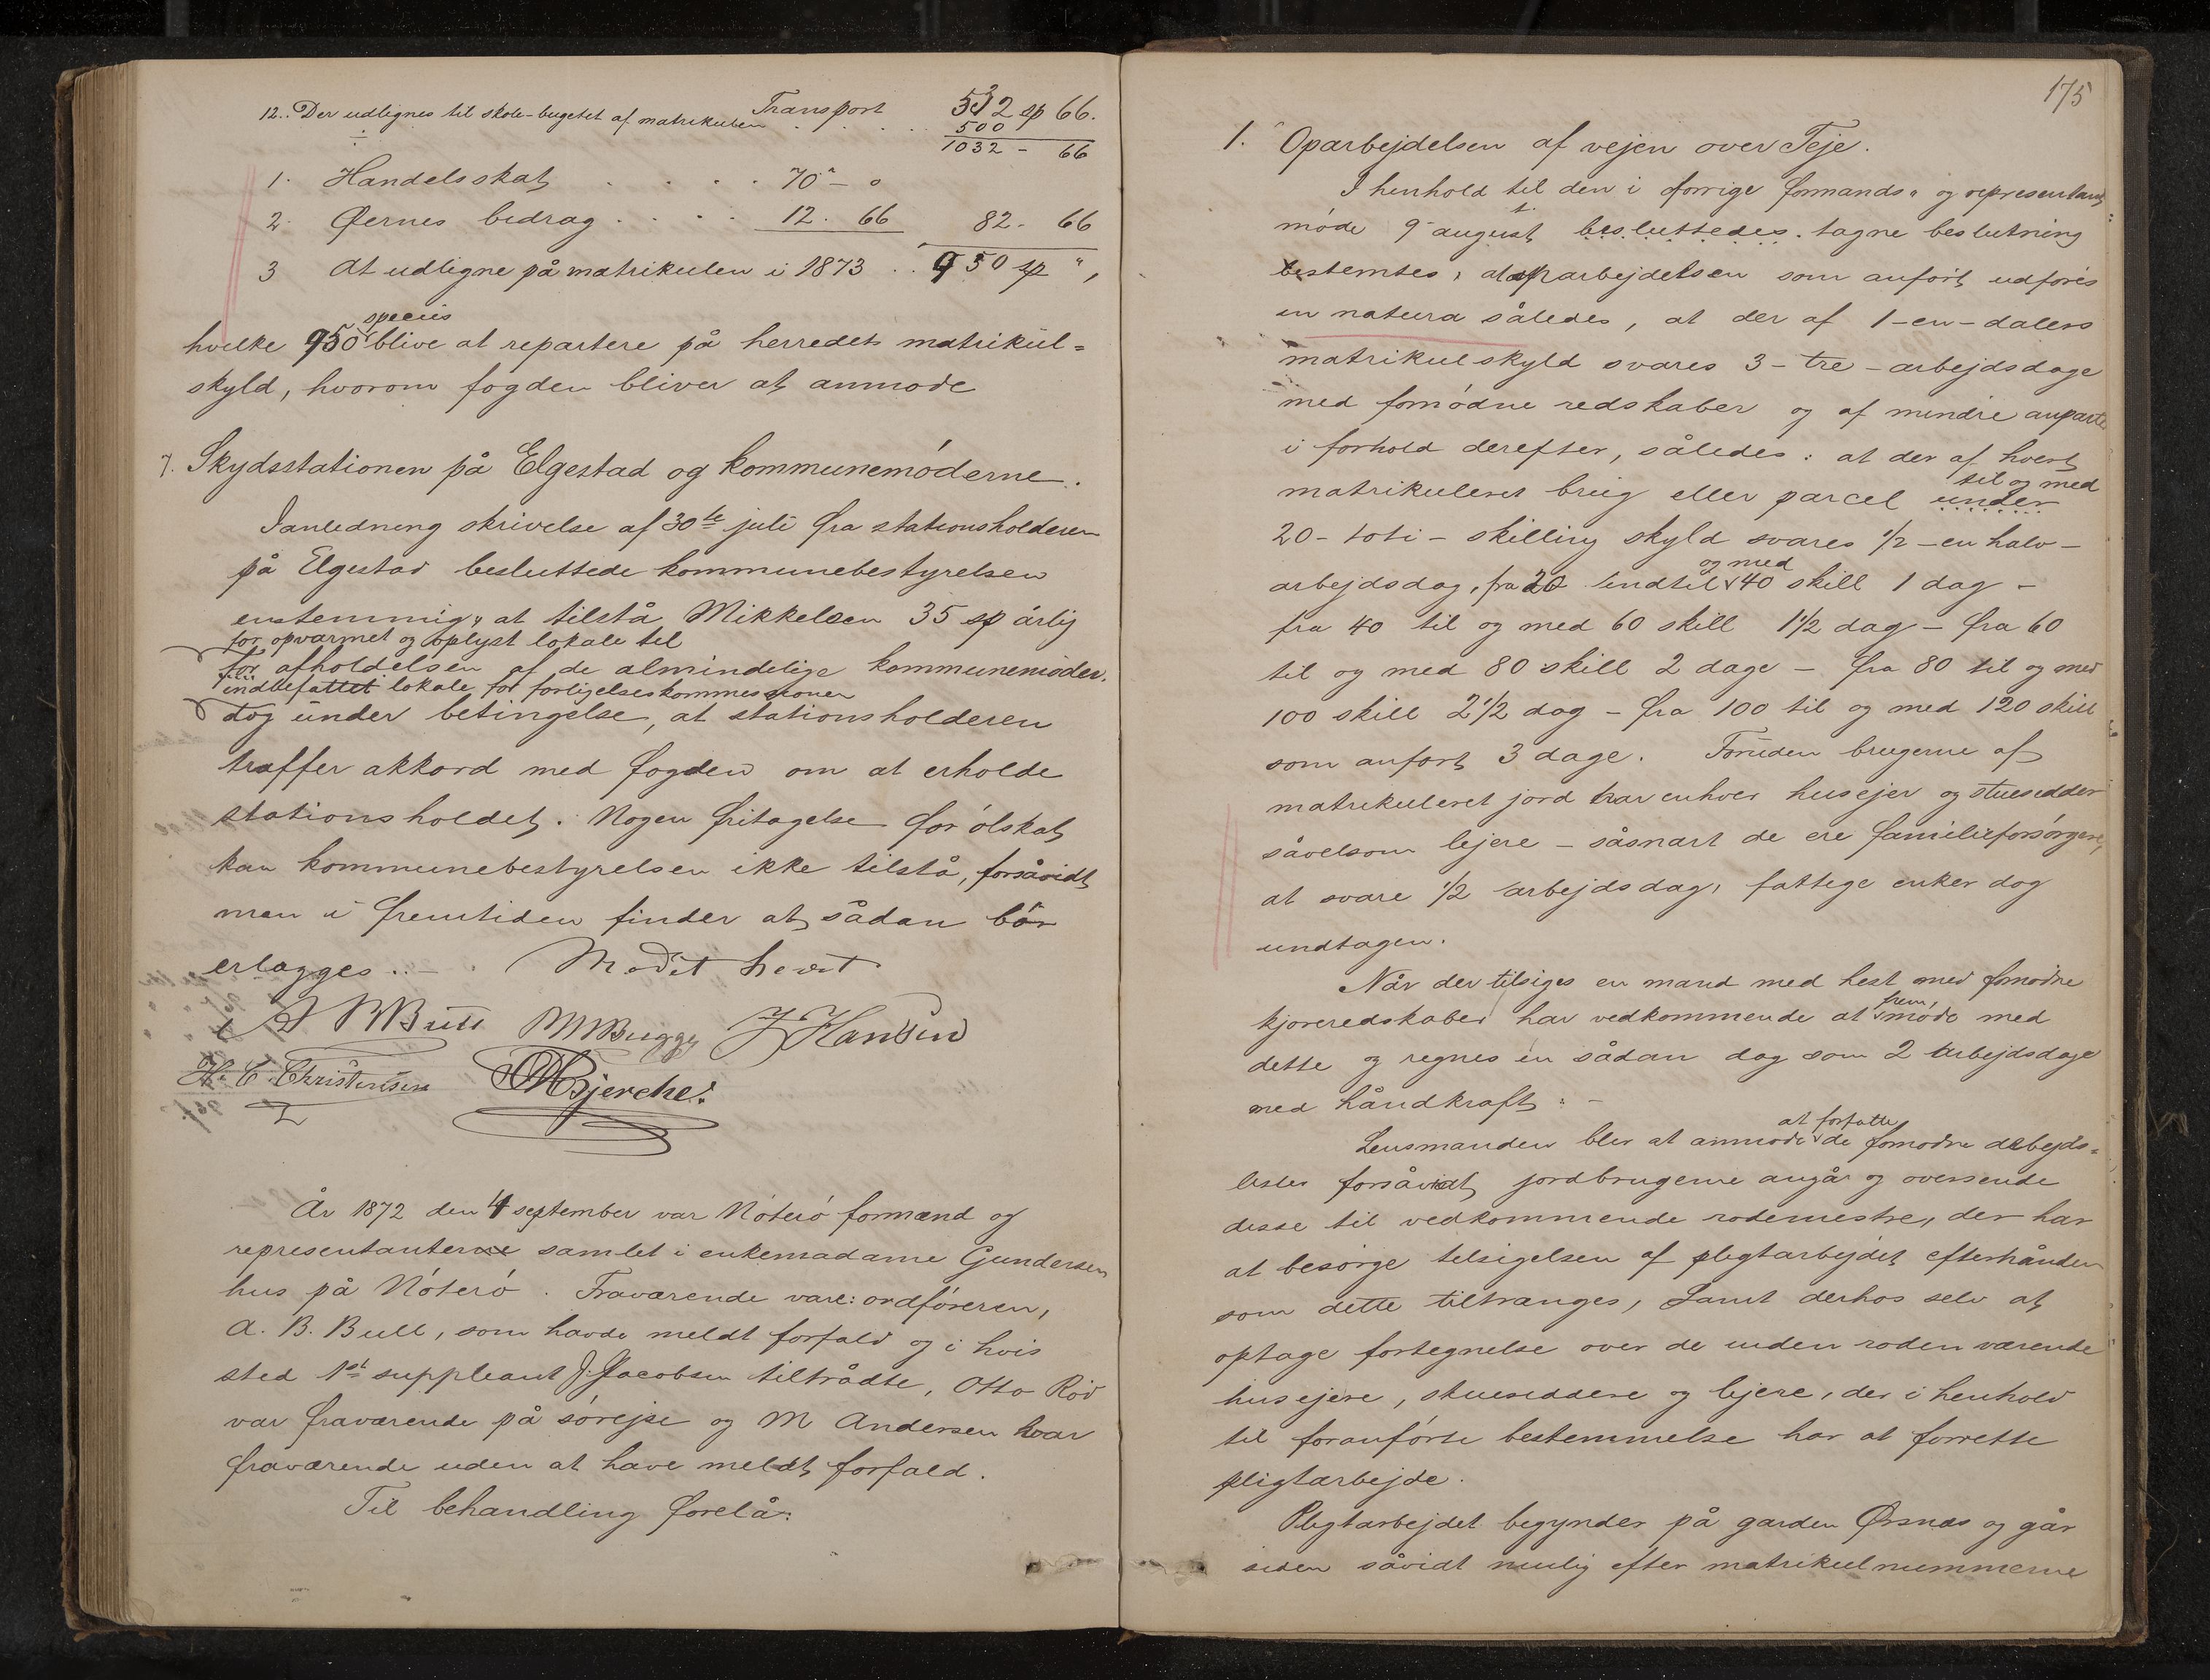 12. Der udlignes til skole-bugetet af matrikulen Transport 532 sp 66.
500
1032 - 66
1. Handelsskat . . . . 70 " - 0
2. Øernes bidrag . . . . 12. 66 82. 66
3 At udligne på matrikulen i 1873 . . 950 sp ",
species
hvilke 950 blive at repartere på herredets matrikul=
skyld, hvorom fogden bliver at anmode
7. Skydsstationen på Elgestad og kommunemöderne.
Ianledning skrivelse af 30te juli fra stationsholderen
på Elgestad besluttede kommunebestyrelsen
enstemmig, at tilstå Mikkelsen 35 sp årlig
for opvarmet og oplyst lokale til
for afholdelsen af de almindelige kommunemöder.
indbefattet lokale for forligelseskommissionen
dog under betingelse, at stationsholderen
træffer akkord med fogden om at erholde
stationsholdet. Nogen fritagelse for ölskat
kan kommunebestyrelsen ikke tilstå, forsåvidt
man i fremtiden finder at sådan bör
erlægges. . - Mödet hævet.
A B Bull M Bugge J Hansen
H. C. Christensen Bjerche.
År 1872 den 4 september var Nöterö formænd og
representanterne samlet i enkemadame Gundersens
hus på Nöterö. Fraværende vare: ordföreren,
A. B. Bull, som havde meldt forfald og i hvis
sted 1st suppleant J. Jacobsen tiltrådte, Otto Röd
var fraværende på söreise og M Andersen var
fraværende uden at have meldt forfald.
Til behandling forelå:
175
1. Oparbejdelsen af vejen over Teje.
I henhold til den i forrige formands- og representant=
möde 9 august besluttedes tagne beslutning
bestemtes, at oparbejdelsen som anfört udföres
in natura således, at der af 1-en-dalers
matrikulskyld svares 3-tre-arbejdsdage
med fornödne redskaber og af mindre anparte
i forhold derefter, således: at der af hvert
til og med
matrikuleret brug eller parcel under
20-toti-skilling skyld svares 1/2-en halv-
og med
arbejdsdag, fra 20 indtil 40 skill 1 dag -
fra 40 til og med 60 skill 1 1/2 dag - fra 60
til og med 80 skill 2 dage - fra 80 til og med
100 skill 2 1/2 dag - fra 100 til og med 120 skill
som anfört 3 dage. Foruden brugerne af
matrikuleret jord har enhver husejer og stuesidder
såvelsom lejere - såsnart de ere familieforsörgere,
at svare 1/2 arbejdsdag, fattige enker dog
undtagen.
Når der tilsiges en mand med hest med fornödne
frem,
kjöreredskaber har vedkommende at möde med
dette og regnes en sådan dag som 2 arbejdsdage
med håndkraft. -
at forfatte
Lensmanden blev at anmode de fornödne arbejds=
lister forsåvidt jordbrugerne angår og oversende
disse til vedkommende rodemestre, der har
at besörge tilsigelsen af pligtarbejdet efterhånden
som dette tiltrænges, samt derhos selv at
optage fortegnelse over de inden roden værende
husejere, stuesiddere og lejere, der i henhold
til foranförte bestemmelse har at forrette
pligtarbejde.
Pligtarbejdet begynder på garden Örsnæs og går
siden såvidt mulig efter matrikulnummerne